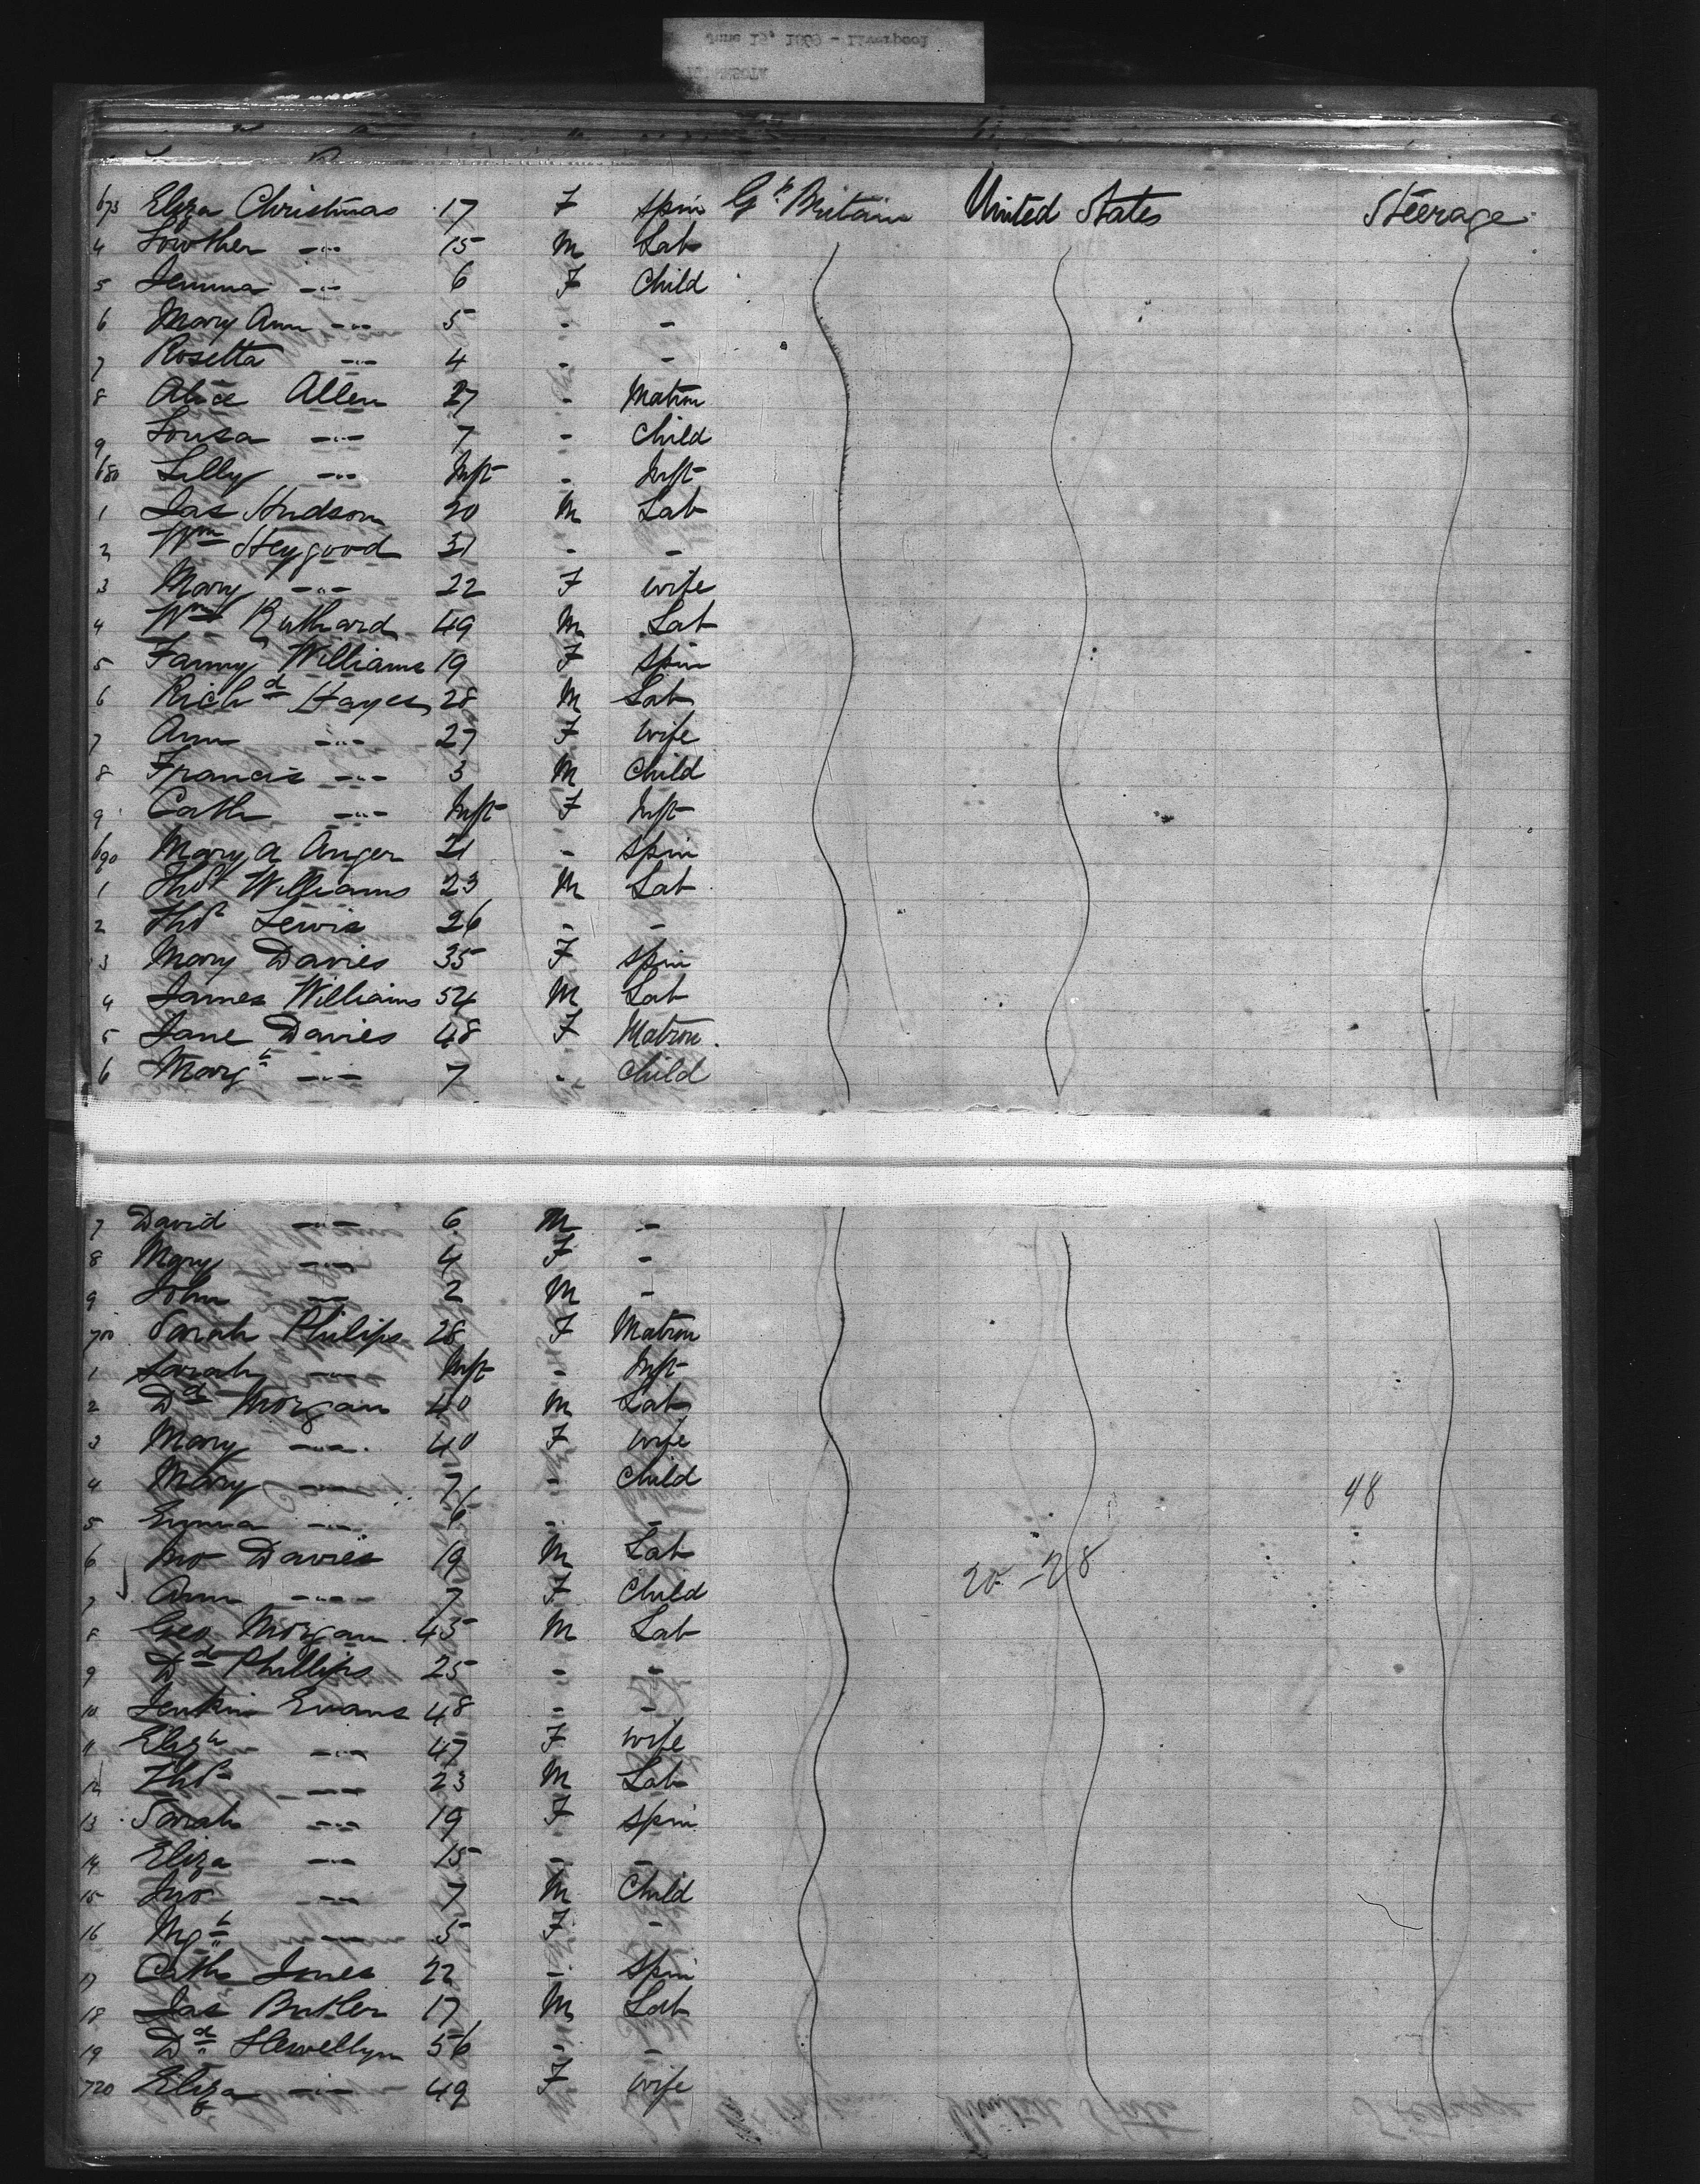 June 15, 1869 - Liverpool
673 Eliza Christmas 17 F Spin Gt Britain United States Steerage
4 Lowther -"- 15 M Lab
5 Jemima -"- 6 F Child
6 Mary Ann -"- 5 - -
7 Rosetta -"- 4 - -
8 Alice Allen 27 - Matron
9 Louisa -"- 7 - Child
680 Lilly -"- Inft - Inft
1 Jas Hudson 20 M Lab
2 Wm Heygood 31 - -
3 Mary -"- 22 F Wife
4 Wm 49 M Lab
5 Fanny Williams 19 F Spin
6 Richd Hayes 28 M Lab
7 Ann -"- 27 F Wife
8 Francis -"- 3 M Child
9 Cath -"- Inft F Inft
690 Mary A Anger 21 - Spin
1 Thos Williams 23 M Lab
2 Thos Lewis 26 - -
3 Mary Davies 35 F Spin
4 James Williams 54 M Lab
5 Jane Davies 48 F Matron
6 Margt -"- 7 - Child
7 David -"- 6 M -
8 Mary -"- 4 F -
9 John -"- 2 M -
700 Sarah Philips 28 F Matron
1 Sarah -"- Inft - Inft
2 Dd Morgan 40 M Lab
3 Mary -"- 40 F Wife
4 Mary -"- 7 - Child 48
5 Emma -"- 6 - -
6 Jno Davies 19 M Lab 20 - 28
7 Ann -"- 7 F Child
8 Geo Morgan 45 M Lab
9 Dd Phillips 25 - -
10 Jenkin Evans 48 - -
11 Elizh -"- 47 F Wife
12 Thos -"- 23 M Lab
13 Sarah -"- 19 F Spin
14 Eliza -"- 15 - -
15 Jno -"- 7 M Child
16 Mgt -"- 5 F -
17 Cath Jones 22 - Spin
18 Jas Butler 17 M Lab
19 Dd Llewellyn 56 - -
720 Eliza -"- 49 F Wife